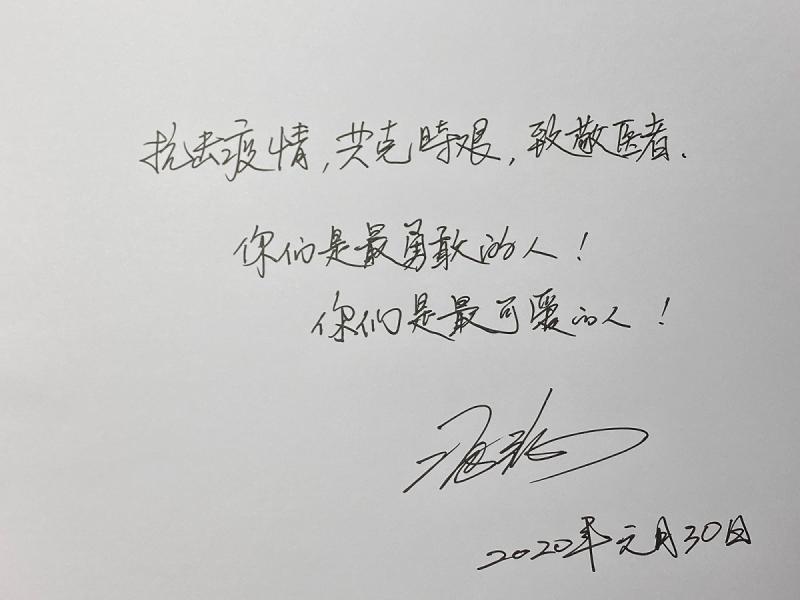 抗击疫情,共克時艰,致敬医者.
你们是最勇敢的人!
你们是最可爱的人!
2020年元月30日